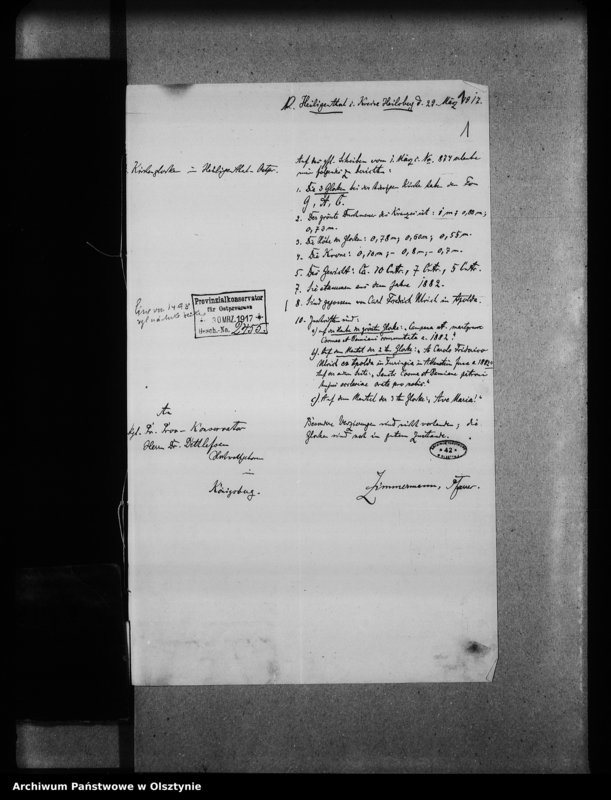 Heiligenthal i. Kreise Heilsberg d. 29. März 1917.
1
Kirchenglocken in Heiligenthal - Ostpr.
Auf das gfl. Schreiben vom 1. März c. No. 874 erlaube
mir folgendes zu berichten:
1. Die 3 Glocken bei der hiesigen Kirche haben den Ton
g, A, C.
2. Der grösste Durchmesser des Kranzes ist: 1 m; 0,80 m;
0,73 m.
3. Die Höhe der Glocken: 0,78 m; 0,60 m; 0,55 m.
4. Die Krone: 0,10 m; - 0,8 m; - 0,7 m.
5. Das Gewicht: Ca. 10 Cntr., 7 Cntr., 5 Cntr.
7. Sie stammen aus dem Jahre 1882.
8. Sind gegossen von Carl Friedrich Ulrich in Apolda.
10. Inschriften sind:
a) auf der grösste Glocke: „Campana St. martyrum
Cosmae et Damiani a. 1882."
b) Auf dem Mantel der 2 ten Glocke: „A Carolo Friderico
Ulrich ex Apolda in Turingia in a. 1882.
Auf der andern Seite: „Sancti Cosma et Damiane patroni
hujus ecclesiae orate pro nobis."
c) Auf dem Mantel der 3 ten Glocke: „Ave Maria!"
Provinzialkonservator
für Ostpreussen
30 MRZ. 1917
Gesch.-No.
An
kgl. Pr. Prov- Konservator
Herrn Dr. Dethlefsen
in
Königsberg.
Besondere Verzierungen sind nicht vorhanden; die
Glocken sind noch in gutem Zustande.
42
Zimmermann, Pfarrer.
Archiwum Państwowe w Olsztynie